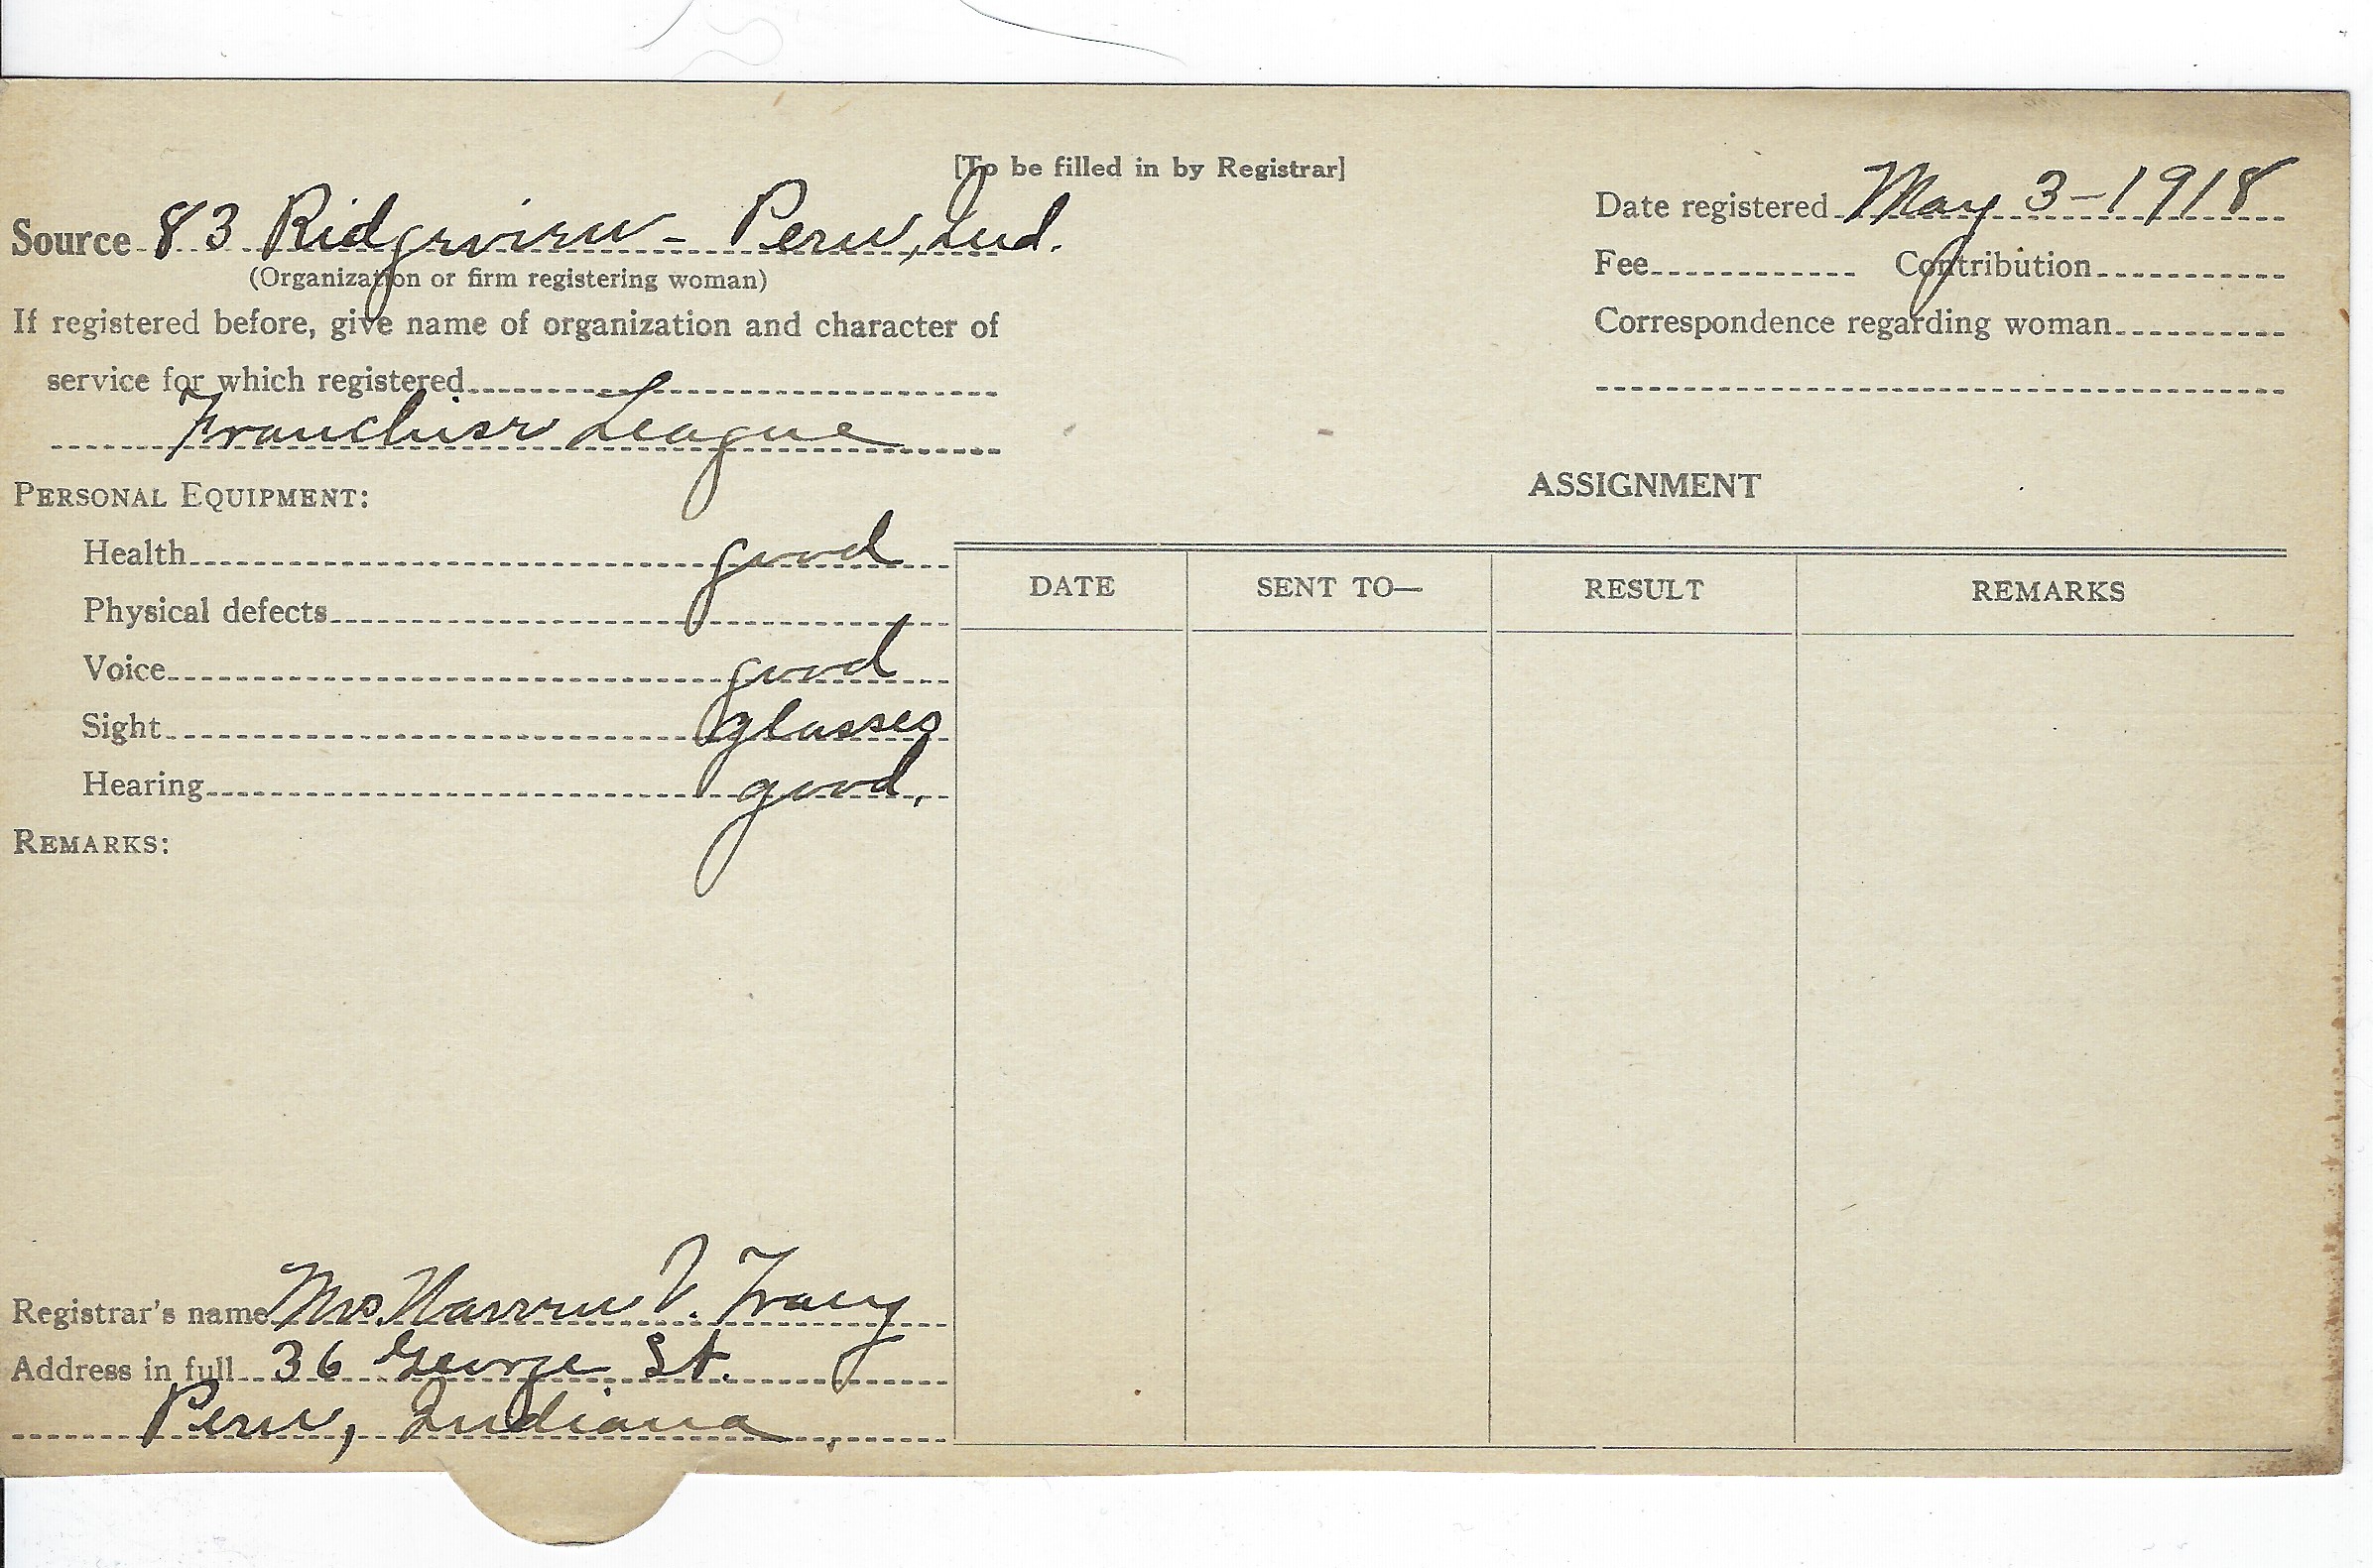 [To be filled in by Registrar]
Source 83 Ridgeview - Peru, Ind.
(Organization or firm registering woman)
If registered before, give name of organization and character of
service for which registered
Franchise League
Date registered May 3-1918
Fee Contribution
Correspondence regarding woman
PERSONAL EQUIPMENT:
Health good
Physical defects
Voice good
Sight glasses
Hearing good.
REMARKS:
ASSIGNMENT
DATE SENT TO— RESULT REMARKS
Registrar's name Mrs. Warren V. Tracy
Address in full 36 George St.
Peru, Indiana.